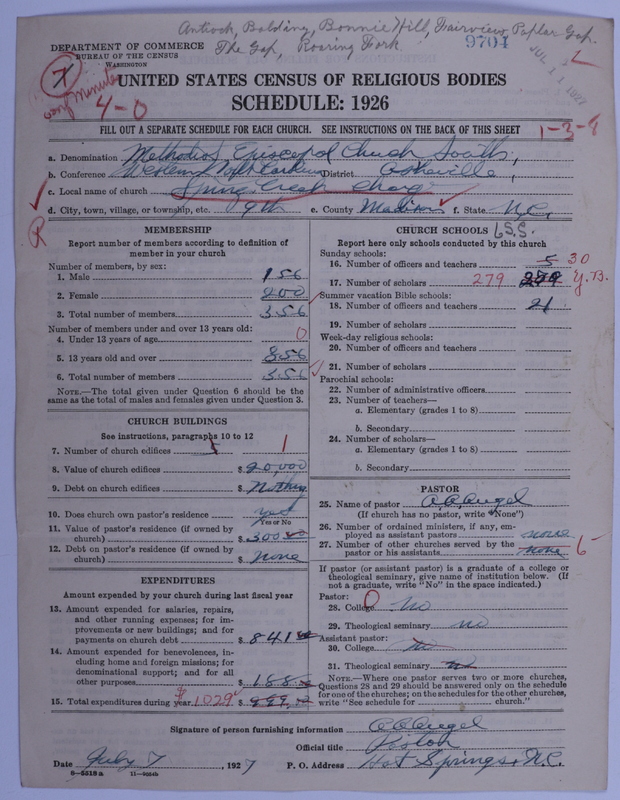 Antioch, Balding, Bonnie Hill, Fairview, Poplar Gap.
The Gap, Roaring Fork.
9704
JUL 11 1927
DEPARTMENT OF COMMERCE
BUREAU OF THE CENSUS
WASHINGTON
X
4-0
UNITED STATES CENSUS OF RELIGIOUS BODIES
SCHEDULE: 1926
FILL OUT A SEPARATE SCHEDULE FOR EACH CHURCH. SEE INSTRUCTIONS ON THE BACK OF THIS SHEET
1-3-8
a. Denomination Methodist Episcopal Church South,
b. Conference Western North Carolina District Asheville,
c. Local name of church Spring Creek Charge
d. City, town, village, or township, etc. 9th e. County Madison f. State N.C.
R
MEMBERSHIP
Report number of members according to definition of
member in your church
Number of members, by sex:
1. Male 156
2. Female 200
3. Total number of members 356
Number of members under and over 13 years old:
4. Under 13 years of age 0
5. 13 years old and over 356
6. Total number of members 356
NOTE.—The total given under Question 6 should be the
same as the total of males and females given under Question 3.
CHURCH BUILDINGS
See instructions, paragraphs 10 to 12
7. Number of church edifices 5 1
8. Value of church edifices $ 20,000
9. Debt on church edifices $ Nothing
10. Does church own pastor's residence yes
Yes or No
11. Value of pastor's residence (if owned by
church) $ 300
12. Debt on pastor's residence (if owned by
church) $ None
EXPENDITURES
Amount expended by your church during last fiscal year
13. Amount expended for salaries, repairs,
and other running expenses; for im-
provements or new buildings; and for
payments on church debt $ 841
14. Amount expended for benevolences, in-
cluding home and foreign missions; for
denominational support; and for all
other purposes $ 188
15. Total expenditures during year $ 1029 $ 999
CHURCH SCHOOLS 6 S.S.
Report here only schools conducted by this church
Sunday schools:
16. Number of officers and teachers 5 30
17. Number of scholars 279 279 Y.B.
Summer vacation Bible schools:
18. Number of officers and teachers 21
19. Number of scholars
Week-day religious schools:
20. Number of officers and teachers
21. Number of scholars
Parochial schools:
22. Number of administrative officers
23. Number of teachers—
a. Elementary (grades 1 to 8)
b. Secondary
24. Number of scholars—
a. Elementary (grades 1 to 8)
b. Secondary
PASTOR
25. Name of pastor A. A. Angel
(If church has no pastor, write "None")
26. Number of ordained ministers, if any, em-
ployed as assistant pastors none
27. Number of other churches served by the
pastor or his assistants none 6
If pastor (or assistant pastor) is a graduate of a college or
theological seminary, give name of institution below. (If
not a graduate, write "No" in the space indicated.)
Pastor:
28. College No
29. Theological seminary no
Assistant pastor:
30. College no
31. Theological seminary no
NOTE.—Where one pastor serves two or more churches,
Questions 28 and 29 should be answered only on the schedule
for one of the churches; on the schedules for the other churches,
write "See schedule for church."
Signature of person furnishing information A. A. Angel
Official title Pastor
Date July 7, 1927 P. O. Address Hot Springs, N.C.
8-5518a 11-9054b